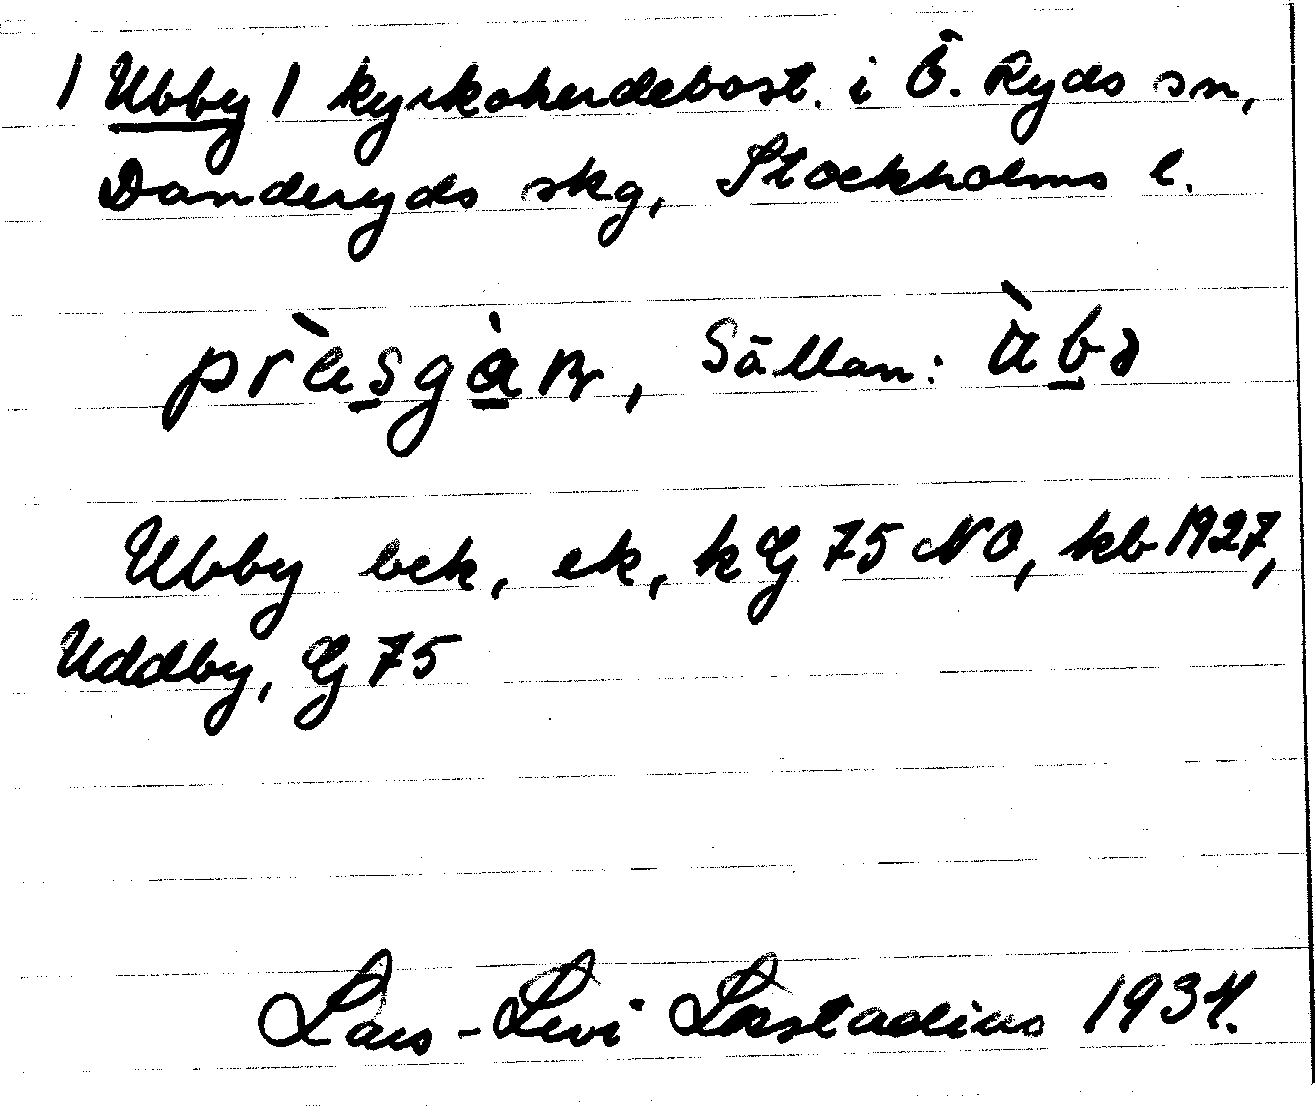 / Ubby / kyrkoherdebost. i Ö. Ryds sn,
Danderyds skg, Stockholms l.
Sällan:
Ubby bck, ek, k G 75 NO, kb 1927,
Uddby, G 75
Lars-Levi Læstadius 1934.